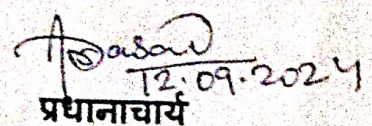 12.09.2024
प्रधानाचार्य